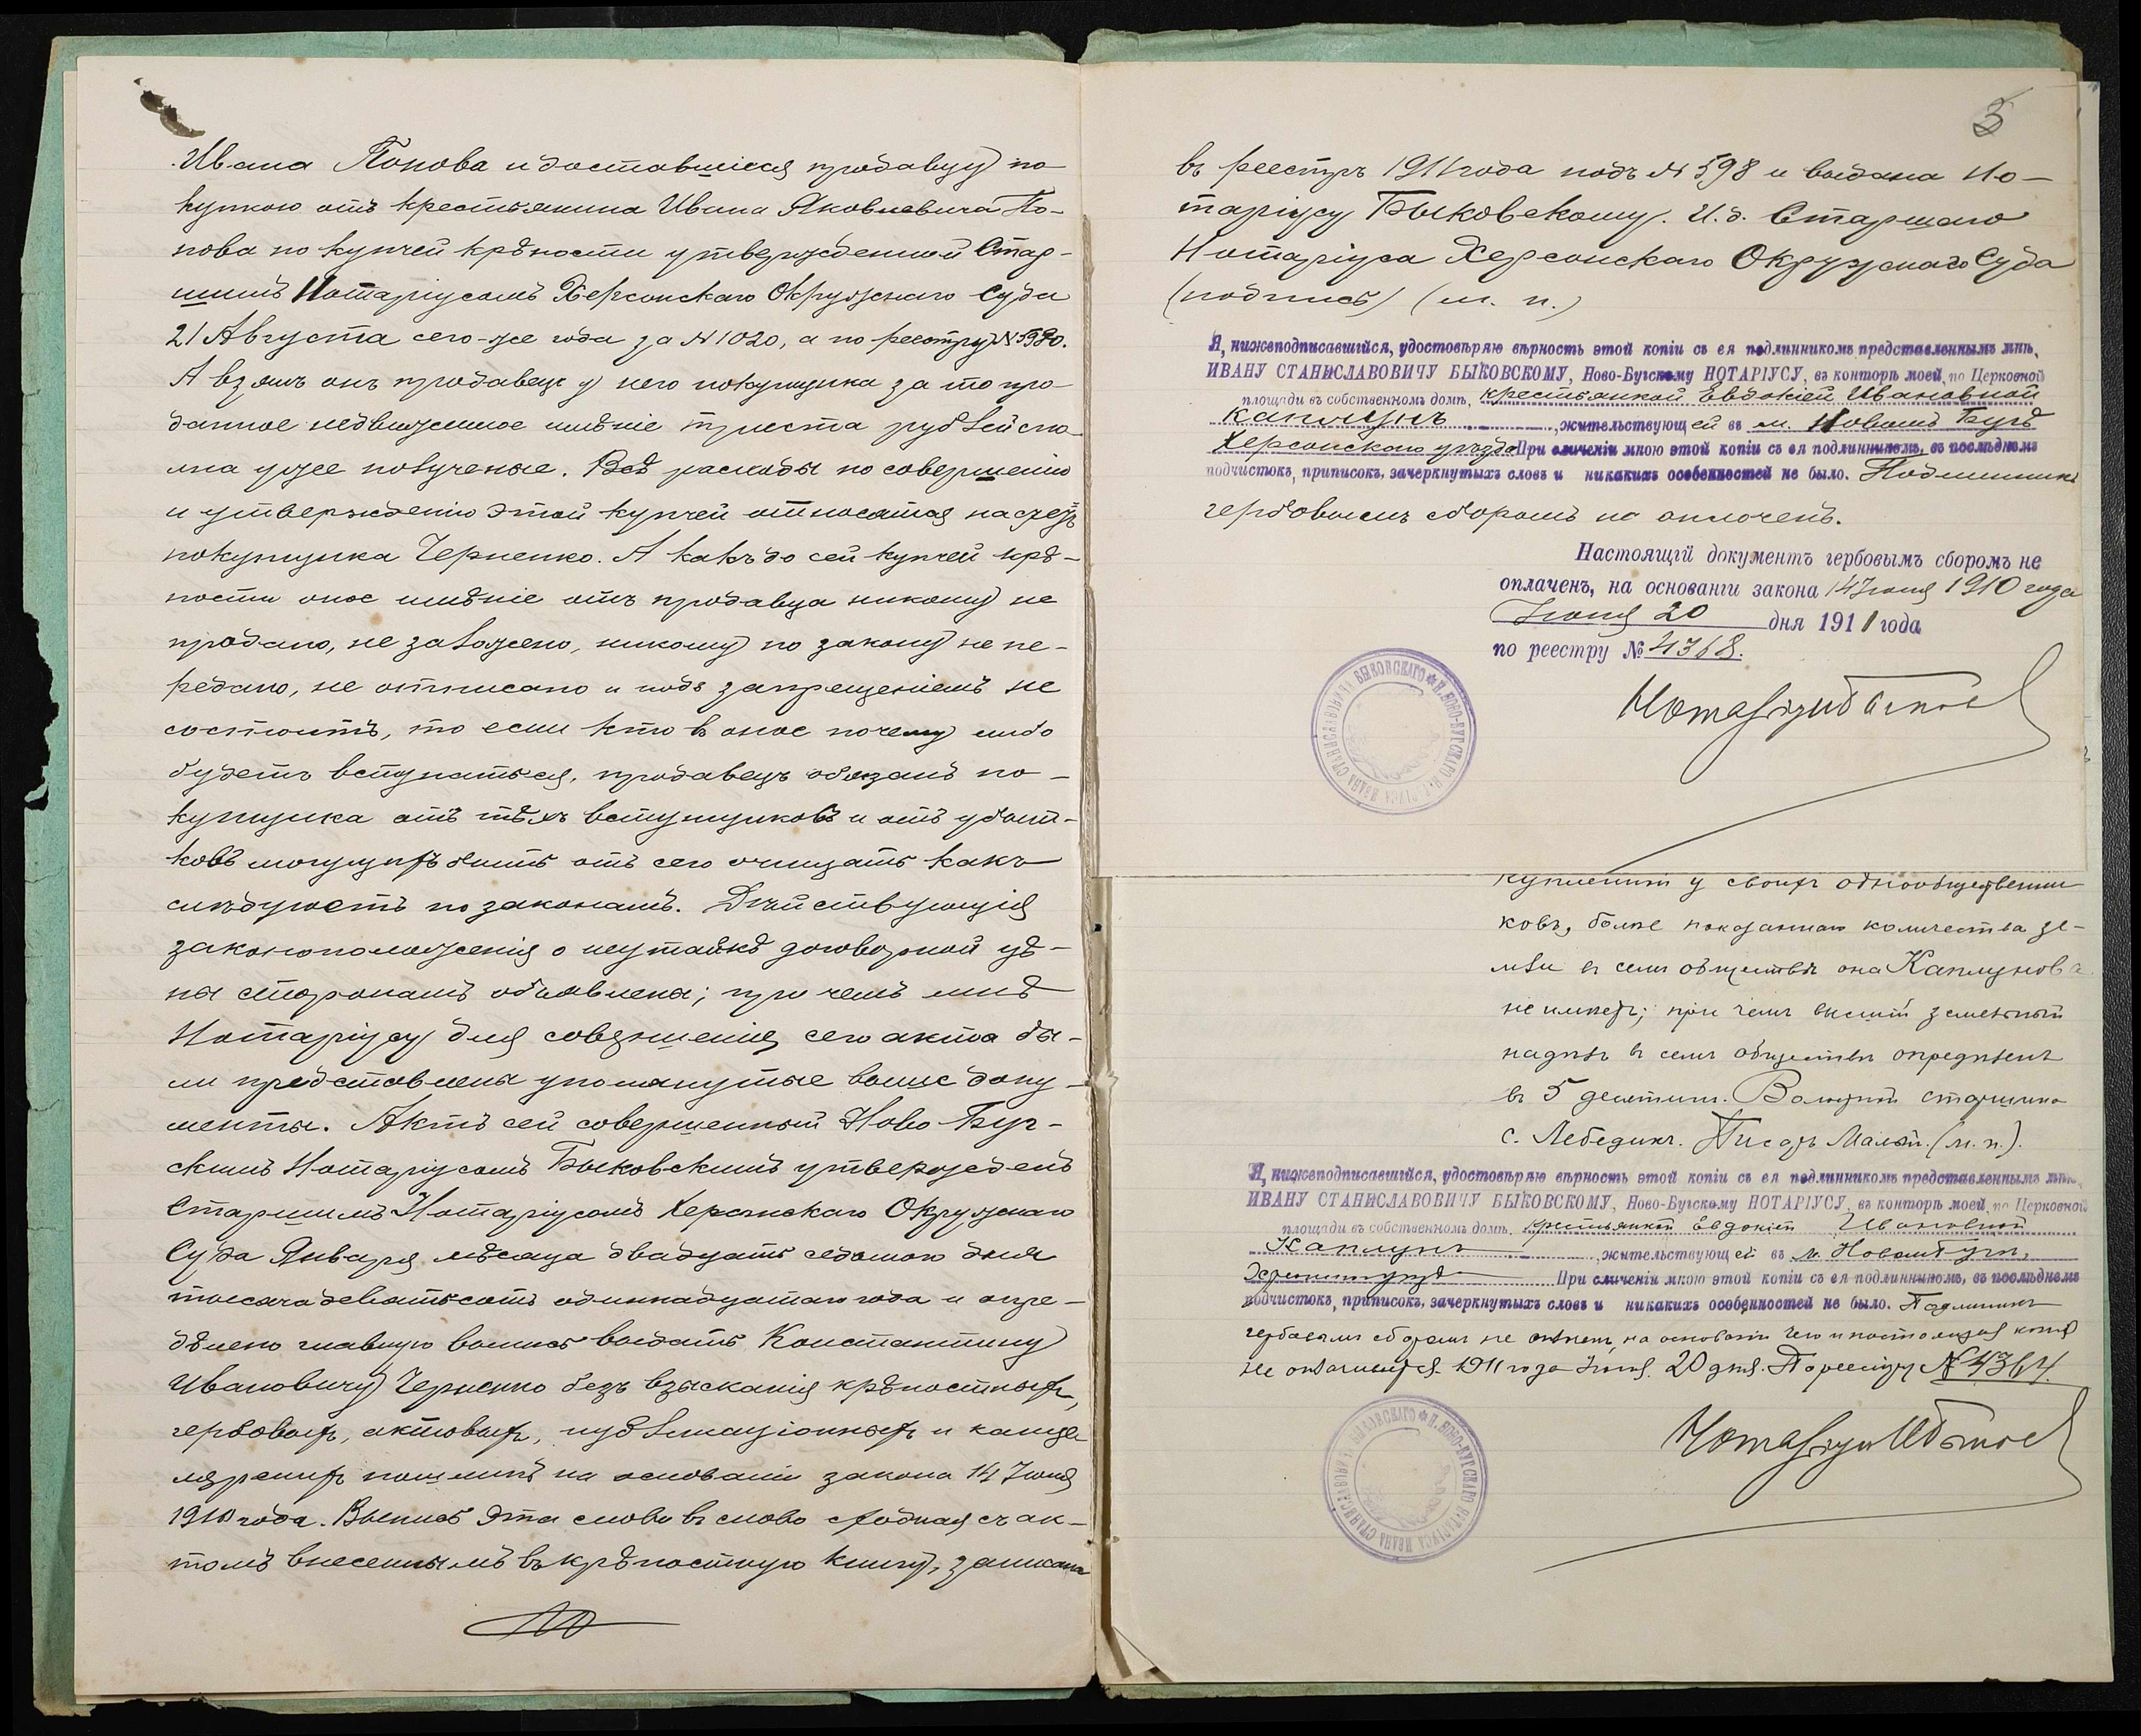 Ивана Попова и доставшіеся продавцу по-
купкою отъ крестьянина Ивана Яковлевича По-
пова по купчей крѣпости утвержденной Стар-
шимъ Нотаріусомъ Херсонскаго Окружнаго Суда
21 Августа сего-же года за № 1020, а по реестру №
А взялъ онъ продавецъ у него покупщика за то про-
данное недвижимое имѣніе триста рублей спо-
лна уже полученые. Всѣ расходы по совершенію
и утвержденію этой купчей относятся на счетъ
покупщика Черненко. А какъ до сей купчей крѣ-
пости оное имѣніе отъ продавца никому не
продано, не заложено, никому по закону не пе-
редано, не отписано и подъ запрещеніемъ не
состоитъ, то если кто въ оное почему либо
будетъ вступаться, продавецъ обязанъ по-
купщика отъ тѣхъ вступщиковъ и отъ убыт-
ковъ могущихъ быть отъ сего очищать какъ
слѣдуетъ по законамъ. Дѣйствующія
законоположенія о неутайкѣ договорной цѣ-
ны сторонамъ объявлены; при чемъ мнѣ
Нотаріусу для совершенія сего акта бы-
ли представлены упомянутые выше доку-
менты. Актъ сей совершенный Ново-Буг-
скимъ Нотаріусомъ Быковскимъ утвержденъ
Старшимъ Нотаріусомъ Херсонскаго Окружнаго
Суда Января мѣсяца двадцать седьмого дня
тысяча девятьсотъ одиннадцатаго года и опре-
дѣлено главную выпись выдать Константину
Ивановичу Черненко безъ взысканія крѣпостныхъ,
гербовыхъ, актовыхъ, публикаціонныхъ и канце-
лярскихъ пошлинъ на основаніи закона 14 Іюня
1910 года. Выпись эта слово въ слово сходная съ ак-
томъ внесеннымъ въ крѣпостную книгу, записана
въ реестръ 1911 года подъ № 598 и выдана Но-
таріусу Быковскому. И.д. Старшаго
Нотаріуса Херсонскаго Окружнаго Суда
(подпись) (м. п.)
Я, нижеподписавшійся, удостовѣряю вѣрность этой копіи съ ея подлинникомъ представленнымъ мнѣ,
ИВАНУ СТАНИСЛАВОВИЧУ БЫКОВСКОМУ, Ново-Бугскому НОТАРІУСУ, въ конторѣ моей, по Церковной
площади въ собственномъ домѣ, крестьянкой Евдокіей Ивановной
Каплунъ, жительствующей въ м. Новомъ Бугѣ
Херсонскаго уѣзда При сличеніи мною этой копіи съ ея подлинникомъ, въ послѣднемъ
подчистокъ, приписокъ, зачеркнутыхъ словъ и никакихъ особенностей не было. Подлинникъ
гербовымъ сборомъ не оплоченъ.
Настоящій документъ гербовымъ сборомъ не
оплаченъ, на основаніи закона 14 Іюня 1910 года
Іюня 20 дня 1911 года
по реестру № 4368.
Нотаріусъ
купленной у своихъ однообщественни
ковъ, болѣе показаннаго количества зе-
мли въ семъ обществѣ она Каплунова
не имѣетъ; при чемъ высшій земельный
надѣлъ въ семъ обществѣ опредѣленъ
въ 5 десятинъ. Волостной старшина
с. Лебединъ. Писарь (м. п.).
Я, нижеподписавшійся, удостовѣряю вѣрность этой копіи съ ея подлинникомъ представленнымъ мнѣ,
ИВАНУ СТАНИСЛАВОВИЧУ БЫКОВСКОМУ, Ново-Бугскому НОТАРІУСУ, въ конторѣ моей, по Церковной
площади въ собственномъ домѣ, крестьянкой Евдокіей Ивановной
Каплунъ, жительствующей въ м. Новомъ Бугѣ,
Херсонск. уѣзда При сличеніи мною этой копіи съ ея подлинникомъ, въ послѣднемъ
подчистокъ, приписокъ, зачеркнутыхъ словъ и никакихъ особенностей не было. Подлинникъ
гербовымъ сборомъ не оплоченъ, на основаніи чего и настоящая копія
не оплачивается. 1911 года Іюня 20 дня. По реестру № 4364.
Нотаріусъ